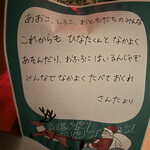 あおこ、しろこ おともだちのみんな
これからも、ひなたくんと なかよく
あそんだり、おふろに はいるんじゃぞ
みんなで なかよく たべて おくれ
さんたより